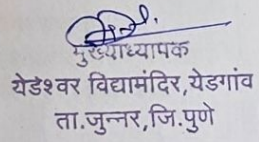 मुख्याध्यापक
येडेश्वर विद्यामंदिर,येडगांव
ता.जुन्नर,जि.पुणे